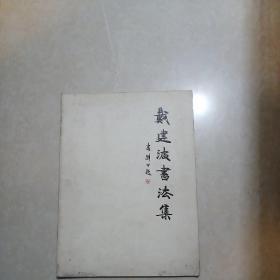 戴建波书法集